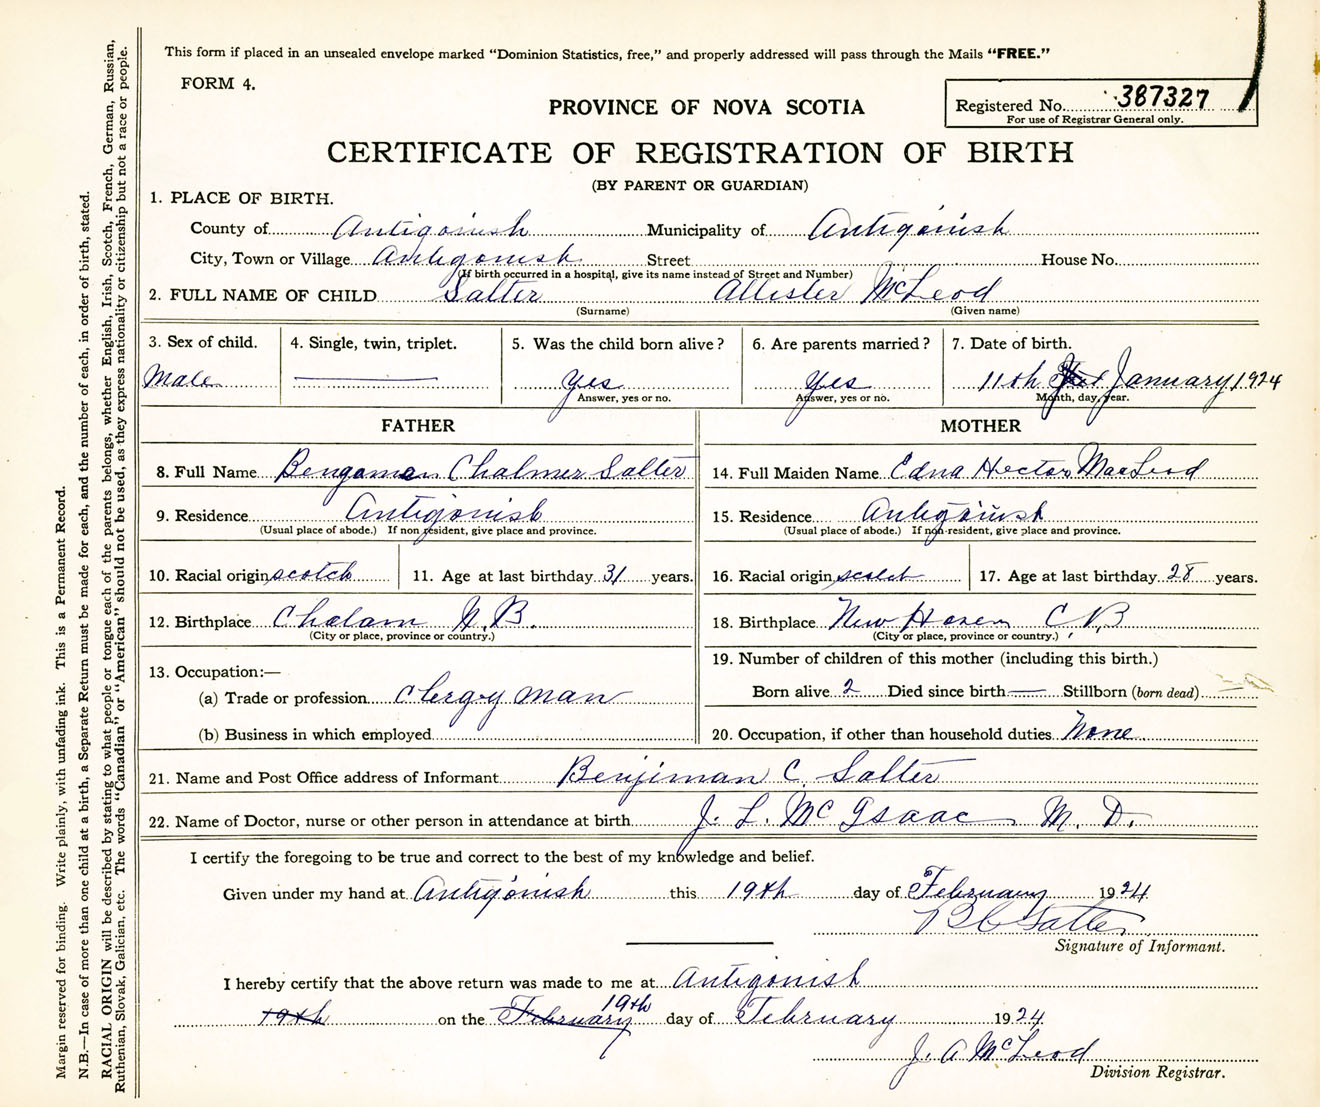 This form if placed in an unsealed envelope marked “Dominion Statistics, free,” and properly addressed will pass through the Mails “FREE.”
FORM 4.
Registered No. 387327
For use of Registrar General only.
PROVINCE OF NOVA SCOTIA
CERTIFICATE OF REGISTRATION OF BIRTH
(BY PARENT OR GUARDIAN)
1. PLACE OF BIRTH.
County of Antigonish Municipality of Antigonish
City, Town or Village Antigonish Street House No.
(If birth occurred in a hospital, give its name instead of Street and Number)
2. FULL NAME OF CHILD Salter Allister McLeod
(Surname) (Given name)
3. Sex of child. 4. Single, twin, triplet. 5. Was the child born alive? 6. Are parents married? 7. Date of birth.
Male yes yes 11th January 1924
Answer, yes or no. Answer, yes or no. Month, day, year.
FATHER MOTHER
8. Full Name Bengaman Chalmer Salter 14. Full Maiden Name Edna Hector MacLeod
9. Residence Antigonish 15. Residence Antigonish
(Usual place of abode.) If non-resident, give place and province. (Usual place of abode.) If non-resident, give place and province.
10. Racial origin scotch 11. Age at last birthday 31 years. 16. Racial origin scotch 17. Age at last birthday 28 years.
12. Birthplace Chatam N.B. 18. Birthplace New Haven C.B
(City or place, province or country.) (City or place, province or country.)
13. Occupation:— 19. Number of children of this mother (including this birth.)
(a) Trade or profession clergy man Born alive 2 Died since birth — Stillborn (born dead) —
(b) Business in which employed 20. Occupation, if other than household duties None
21. Name and Post Office address of Informant Benjiman C. Salter
22. Name of Doctor, nurse or other person in attendance at birth J. L. McIsaac M. D.
I certify the foregoing to be true and correct to the best of my knowledge and belief.
Given under my hand at Antigonish this 19th day of February 1924
B C Salter
Signature of Informant.
I hereby certify that the above return was made to me at Antigonish
19th on the February 19th day of February 1924
J. A McLeod
Division Registrar.
Margin reserved for binding. Write plainly, with unfading ink. This is a Permanent Record.
N.B.—In case of more than one child at a birth, a Separate Return must be made for each, and the number of each, in order of birth, stated.
RACIAL ORIGIN will be described by stating to what people or tongue each of the parents belongs, whether English, Irish, Scotch, French, German, Russian,
Ruthenian, Slovak, Galician, etc. The words “Canadian” or “American” should not be used, as they express nationality or citizenship but not a race or people.